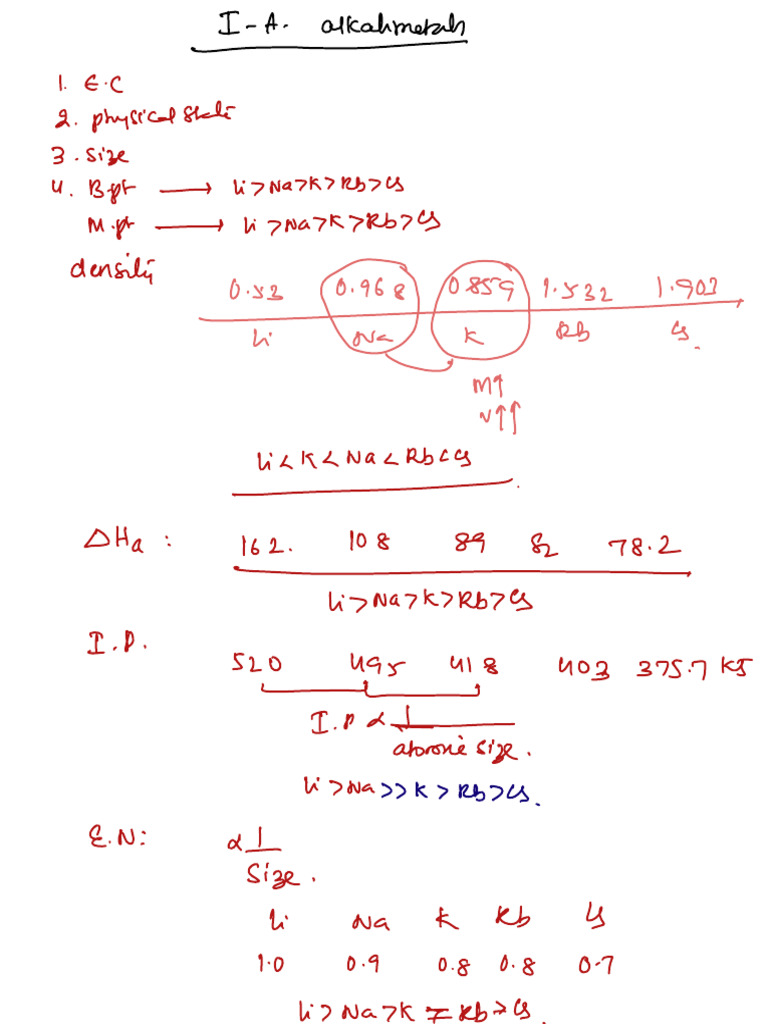 I-A. alkalimetals
1. E.C
2. physical state
3. Size
4. B.pt → Li>Na>K>Rb>Cs
M.pt → Li>Na>K>Rb>Cs
density
0.53 0.968 0.859 1.532 1.903
Li Na K Rb Cs
M↑
V↑↑
Li<K<Na<Rb<Cs
ΔHa : 162. 108 89 82 78.2
Li>Na>K>Rb>Cs
I.P.
520 495 418 403 375.7 KJ
I.P α 1
atomic size.
Li>Na>>K>Rb>Cs.
E.N: α 1
Size.
Li Na K Rb Cs
1.0 0.9 0.8 0.8 0.7
Li>Na>K Rb>Cs.